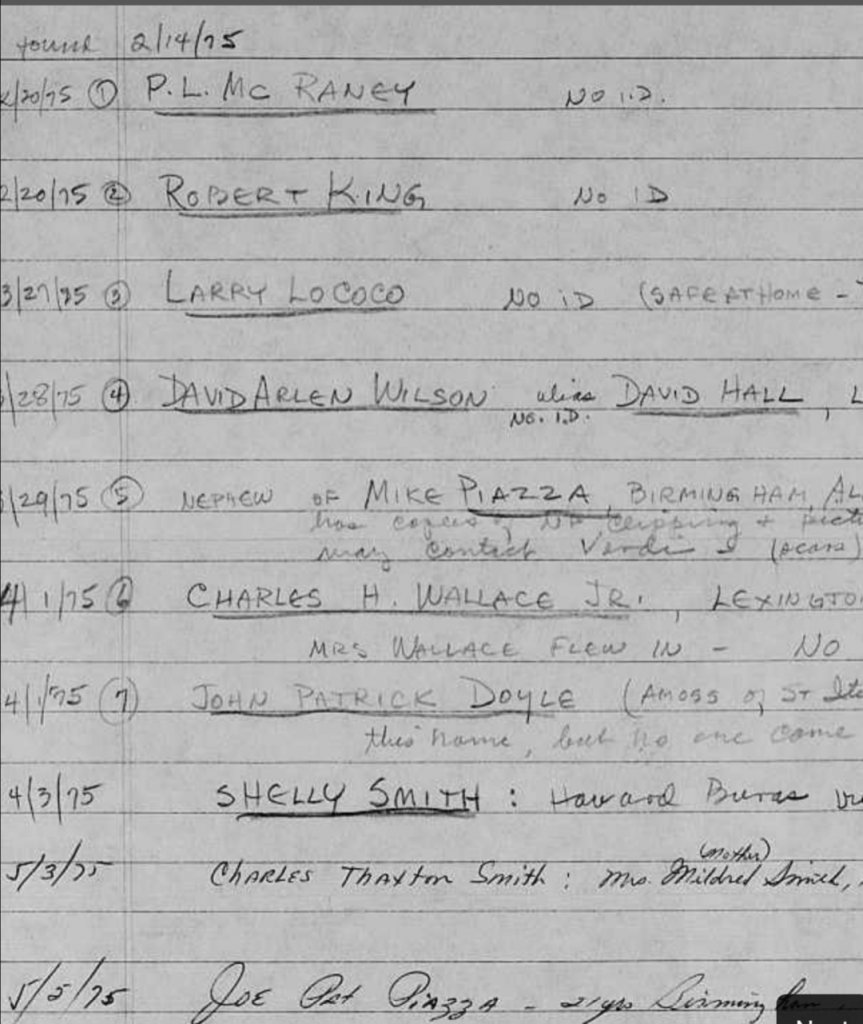 found 2/14/75
2/20/75 ① P.L. MC RANEY NO I.D.
2/20/75 ② ROBERT KING NO ID
3/27/75 ③ LARRY LOCOCO NO ID (SAFE AT HOME -
/28/75 ④ DAVID ARLEN WILSON alias DAVID HALL, L
NO. I.D.
/29/75 ⑤ NEPHEW OF MIKE PIAZZA, BIRMINGHAM, AL
has copies of clipping + pict
may contact Verdi
4/1/75 ⑥ CHARLES H. WALLACE JR., LEXINGTO
MRS WALLACE FLEW IN - NO
4/1/75 ⑦ JOHN PATRICK DOYLE (AMOSS of ST
this name, but no one came
4/3/75 SHELLY SMITH : Howard Buras
5/3/75 CHARLES Thaxton Smith : Mrs. Mildred Smith,
(mother)
5/5/75 JOE Pat PIAZZA - 21 yrs Birmingham